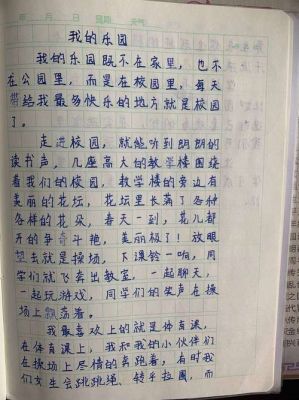 年 月 日 星期 天气
我的乐园
我的乐园既不在家里，也不
在公园里，而是在校园里，每天
带给我最多快乐的地方就是校园
了。
走进校园，就能听到朗朗的
读书声，几座高大的教学楼围绕
着我们的校园，教学楼的旁边有
美丽的花坛，花坛里长满了各种
各样的花朵，春天一到，花儿都
开的争奇斗艳，美丽极了！放眼
望去就是操场，下课铃一响，同
学们就飞奔出教室，一起聊天，
一起玩游戏，同学们的笑声在操
场上飘荡着。
我最喜欢上的就是体育课，
在体育课上，我和我的小伙伴们
在操场上尽情的奔跑着，有时我
们女生会跳跳绳、转乎拉圈，而